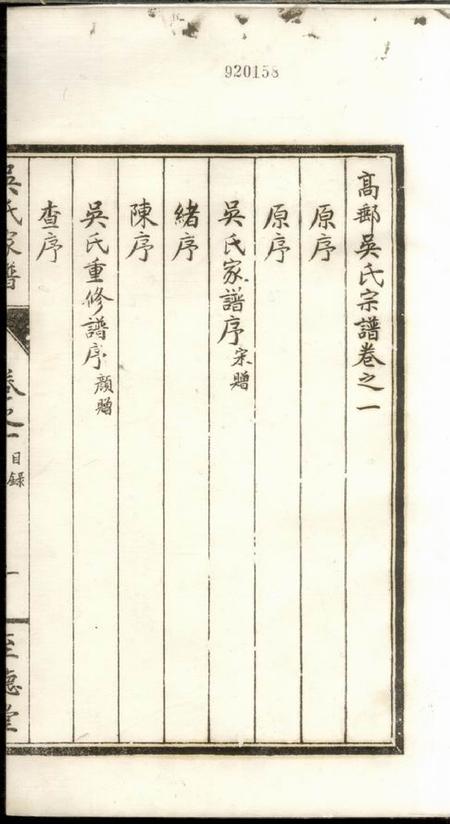 920158
高郵吳氏宗譜卷之一
原序
原序
吳氏家譜序 宋贈
緒序
陳序
吳氏重修譜序 顏贈
查序
吳氏家譜 卷之一 目錄 一 至德堂